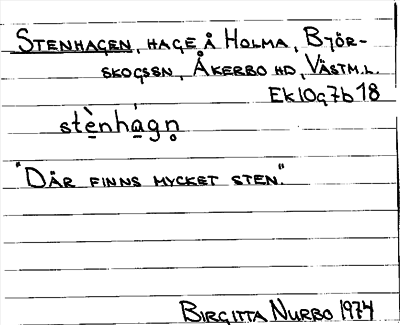 STENHAGEN, HAGE Å HOLMA, BJÖR-
SKOGSSN, ÅKERBO HD, VÄSTM.L.
EK10g7b18
stè̱nhá̱gn̥
"DÄR FINNS MYCKET STEN."
BIRGITTA NURBO 1974